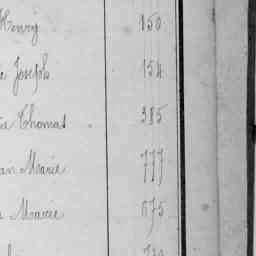 Henry 150
Joseph 154
Thomas 385
Marie 777
Marie 675